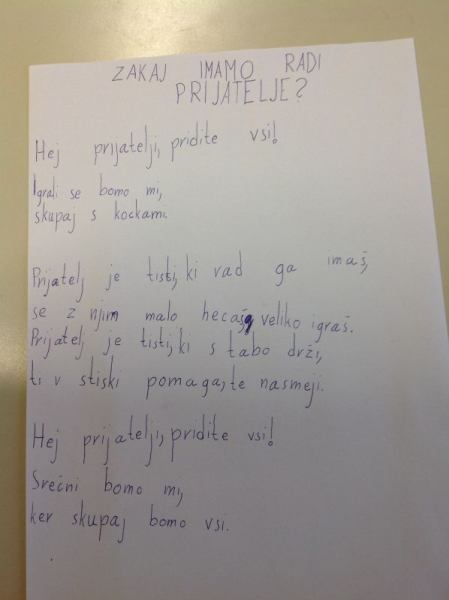 ZAKAJ IMAMO RADI
PRIJATELJE?
Hej prijatelji, pridite vsi!
Igrali se bomo mi,
skupaj s kockami.
Prijatelj je tisti, ki vad ga imaš,
se z njim malo hecaš, veliko igraš.
Prijatelj je tisti, ki s tabo drži,
ti v stiski pomaga, te nasmeji.
Hej prijatelji, pridite vsi!
Srečni bomo mi,
ker skupaj bomo vsi.